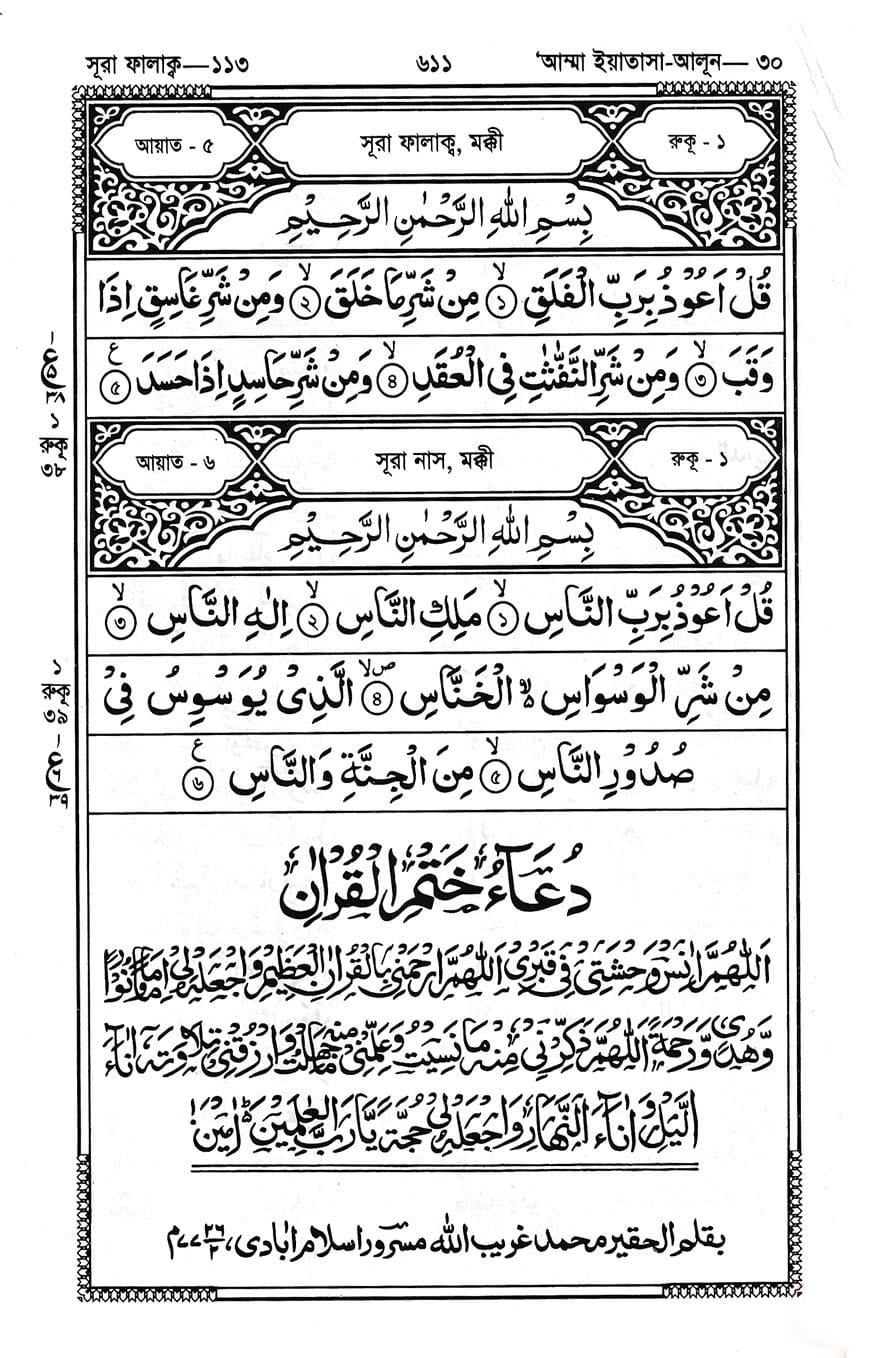 সূরা ফালাক্ব—১১৩ ৬১১ ‘আম্মা ইয়াতাসা-আলূন— ৩০
আয়াত - ৫ সূরা ফালাক্ব, মক্কী রুকূ - ১
بِسْمِ اللّٰهِ الرَّحْمٰنِ الرَّحِيْمِ
قُلْ اَعُوْذُ بِرَبِّ الْفَلَقِ ۙ ১ مِنْ شَرِّ مَا خَلَقَ ۙ ২ وَمِنْ شَرِّ غَاسِقٍ اِذَا
وَقَبَ ۙ ৩ وَمِنْ شَرِّ النَّفّٰثٰتِ فِى الْعُقَدِ ۙ ৪ وَمِنْ شَرِّ حَاسِدٍ اِذَا حَسَدَ ع ৫
১ রুকূ ৩৮
আয়াত - ৬ সূরা নাস, মক্কী রুকূ - ১
بِسْمِ اللّٰهِ الرَّحْمٰنِ الرَّحِيْمِ
قُلْ اَعُوْذُ بِرَبِّ النَّاسِ ۙ ১ مَلِكِ النَّاسِ ۙ ২ اِلٰهِ النَّاسِ ۙ ৩
مِنْ شَرِّ الْوَسْوَاسِ ۙ الْخَنَّاسِ ۪ۙ ৪ الَّذِىْ يُوَسْوِسُ فِىْ
১ রুকূ ৩৯
صُدُوْرِ النَّاسِ ۙ ৫ مِنَ الْجِنَّةِ وَالنَّاسِ ع ৬
دُعَآءُ خَتْمِ الْقُرْاٰنِ
اَللّٰهُمَّ اٰنِسْ وَحْشَتِىْ فِىْ قَبْرِىْ اَللّٰهُمَّ ارْحَمْنِىْ بِالْقُرْاٰنِ الْعَظِيْمِ وَاجْعَلْهُ لِىْ اِمَامًا وَّنُوْرًا
وَّهُدًى وَّرَحْمَةً اَللّٰهُمَّ ذَكِّرْنِىْ مِنْهُ مَا نَسِيْتُ وَعَلِّمْنِىْ مِنْهُ مَا جَهِلْتُ وَارْزُقْنِىْ تِلَاوَتَهٗ اٰنَآءَ
الَّيْلِ وَاٰنَآءَ النَّهَارِ وَاجْعَلْهُ لِىْ حُجَّةً يَّارَبَّ الْعٰلَمِيْنَ ؕ اٰمِيْنَ
بقلم الحقير محمد غريب الله مسرور اسلام ابادى،